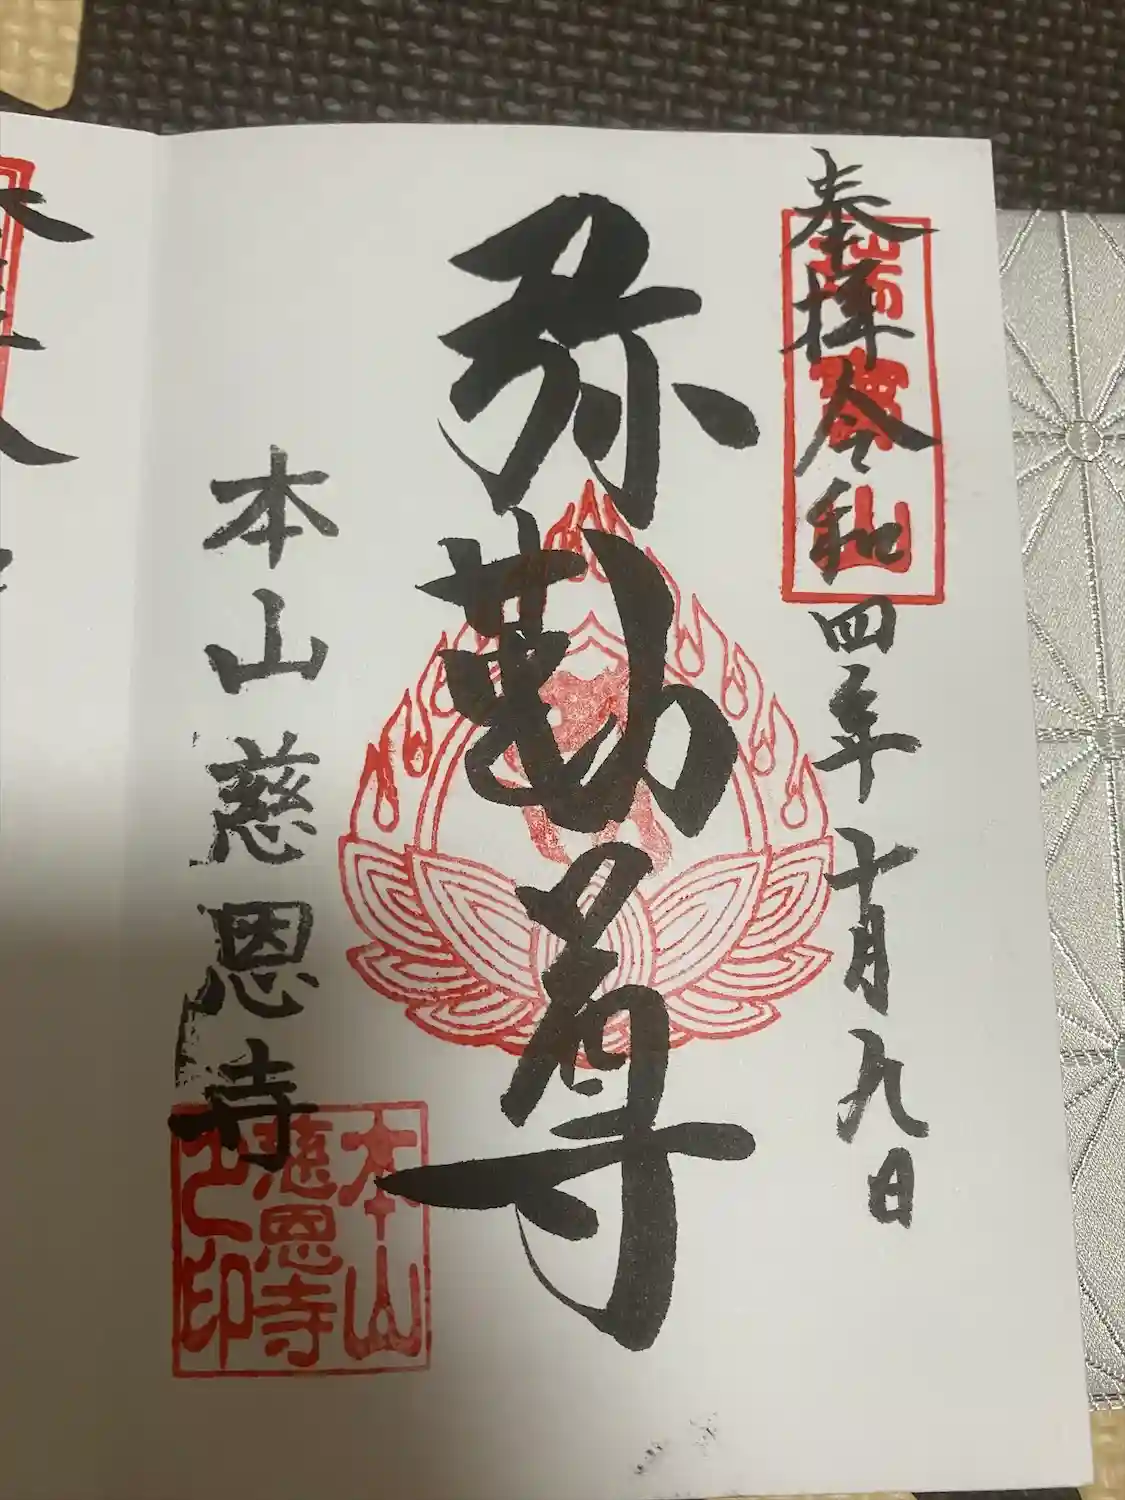 奉拝 令和四年十月九日
瑞寶山
弥勒尊
本山慈恩寺
本山
慈恩寺
之印